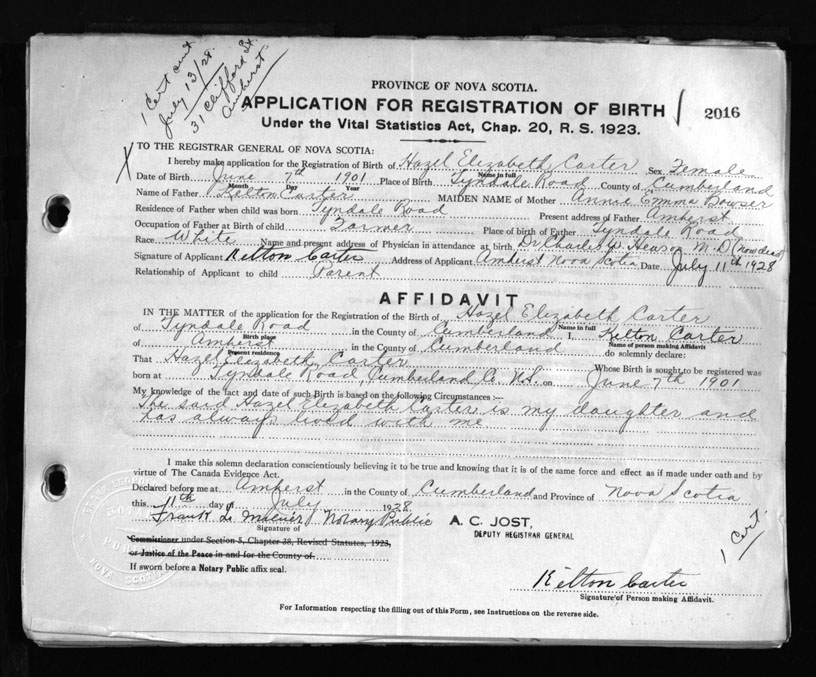 1 Cert sent
July 13/28.
31 Clifford St.
Amherst
PROVINCE OF NOVA SCOTIA.
APPLICATION FOR REGISTRATION OF BIRTH
2016
Under the Vital Statistics Act, Chap. 20, R. S. 1923.
X TO THE REGISTRAR GENERAL OF NOVA SCOTIA:
I hereby make application for the Registration of Birth of Hazel Elizabeth Carter Sex Female
Name in full
Date of Birth June 7th 1901 Place of Birth Tyndale Road County of Cumberland
Month Day Year
Name of Father Kelton Carter MAIDEN NAME of Mother Annie Emma Bowser
Residence of Father when child was born Tyndale Road Present address of Father Amherst
Occupation of Father at Birth of child Farmer Place of birth of Father Tyndale Road
Race White Name and present address of Physician in attendance at birth, Dr Charles Hewson M.D (now dead)
Signature of Applicant Kelton Carter Address of Applicant Amherst Nova Scotia Date July 11th 1928
Relationship of Applicant to child Parent
AFFIDAVIT
IN THE MATTER of the application for the Registration of the Birth of Hazel Elizabeth Carter
Name in full
of Tyndale Road in the County of Cumberland I, Kelton Carter
Birth place Name of person making Affidavit
of Amherst in the County of Cumberland do solemnly declare:
Present residence
That Hazel Elizabeth Carter Whose Birth is sought to be registered was
born at Tyndale Road, Cumberland Co. N.S. on June 7th 1901
My knowledge of the fact and date of such Birth is based on the following Circumstances :—
The said Hazel Elizabeth Carter is my daughter and
has always lived with me
I make this solemn declaration conscientiously believing it to be true and knowing that it is of the same force and effect as if made under oath and by
virtue of The Canada Evidence Act.
Declared before me at Amherst in the County of Cumberland and Province of Nova Scotia
this 11th day of July 1928.
Frank L. Notary Public
Signature of
A. C. JOST,
DEPUTY REGISTRAR GENERAL
Commissioner under Section 5, Chapter 38, Revised Statutes, 1923,
or Justice of the Peace in and for the County of
If sworn before a Notary Public affix seal.
1 Cert.
Kelton Carter
Signature of Person making Affidavit.
For Information respecting the filling out of this Form, see Instructions on the reverse side.